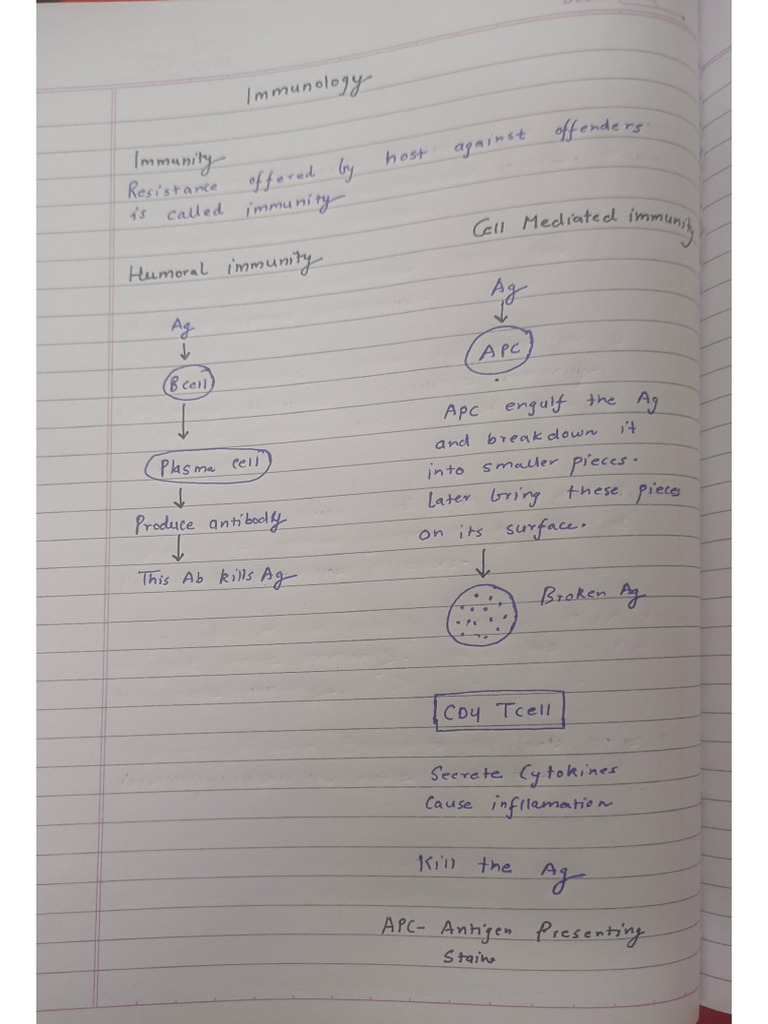 Immunology
Immunity
Resistance offered by host against offenders
is called immunity
Humoral immunity
Ag
B cell
Plasma cell
Produce antibody
This Ab kills Ag
Cell Mediated immunity
Ag
APC
APC engulf the Ag
and breakdown it
into smaller pieces.
Later bring these pieces
on its surface.
Broken Ag
CD4 Tcell
Secrete Cytokines
Cause infllamation
Kill the Ag
APC- Antigen Presenting
Stains